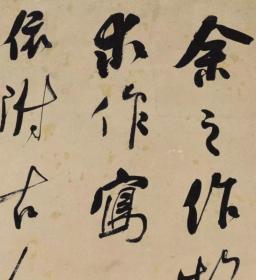 余之作
求作寫
依附古人